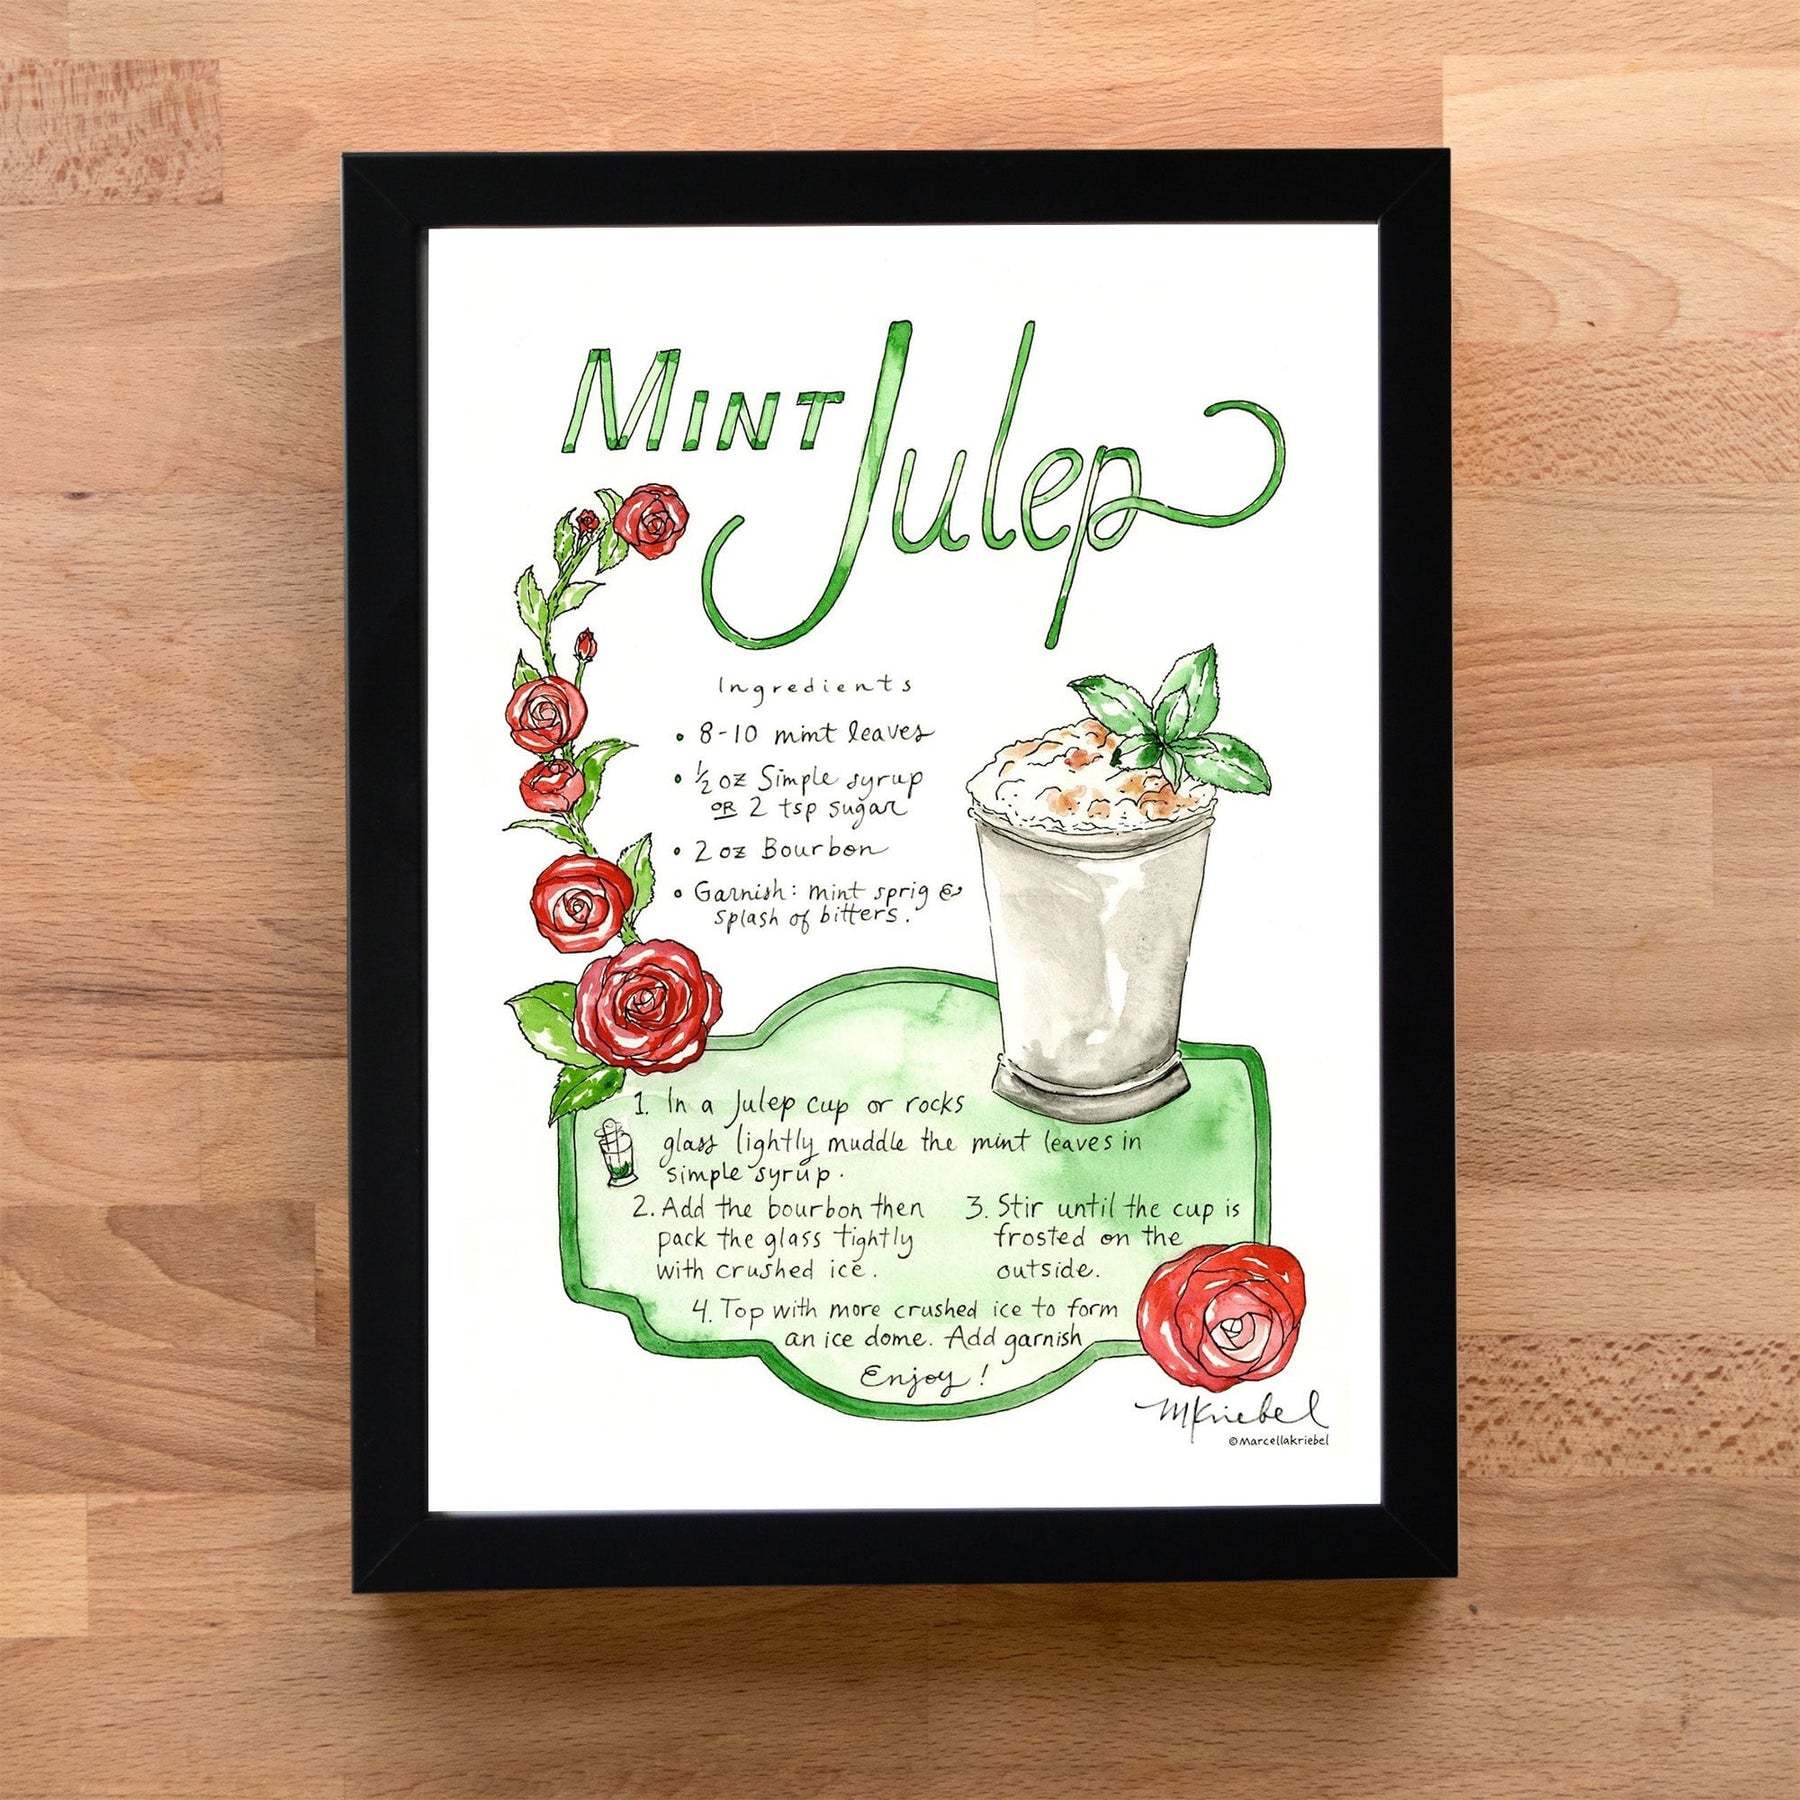 Mint Julep
Ingredients
• 8-10 mint leaves
• ½ oz Simple syrup
OR 2 tsp sugar
• 2 oz Bourbon
• Garnish: mint sprig &
splash of bitters.
1. In a Julep cup or rocks
glass lightly muddle the mint leaves in
simple syrup.
2. Add the bourbon then
pack the glass tightly
with crushed ice.
3. Stir until the cup is
frosted on the
outside.
4. Top with more crushed ice to form
an ice dome. Add garnish
Enjoy!
MKriebel
©Marcellakriebel